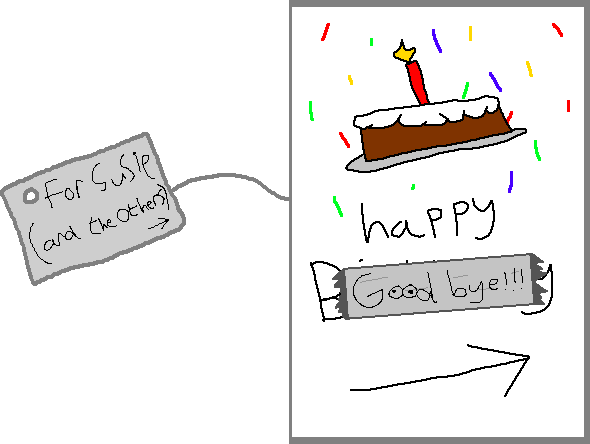 For Susie
(and the others)
happy
Good bye!!!